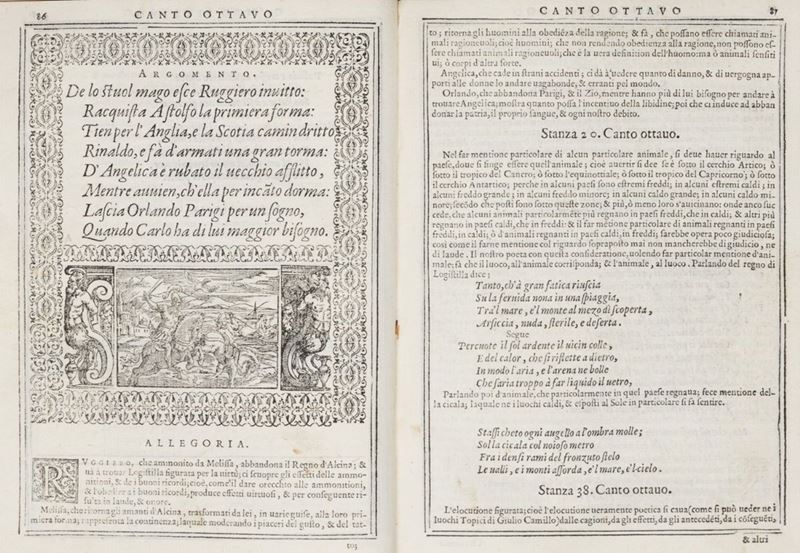 86
CANTO OTTAVO
ARGOMENTO.
De lo stuol mago esce Ruggiero inuitto:
Racquista Astolfo la primiera forma:
Tien per l'Anglia, e la Scotia camin dritto
Rinaldo, e fà d'armati una gran torma:
D'Angelica è rubato il uecchio afflitto,
Mentre auuien, ch'ella per incãto dorma:
Lascia Orlando Parigi per un sogno,
Quando Carlo ha di lui maggior bisogno.
ALLEGORIA.
RVGGIERO, che ammonito da Melissa, abbandona il Regno d'Alcina; &
uà à trouar Logistilla figurata per la uirtù; ci scuopre gli effetti delle ammo-
nitioni, & de i buoni ricordi; cioè, come'il dare orecchio alle ammonitioni,
& i buoni ricordi, produce effetti uirtuosi, & per conseguente ri-
in laude, & onore.
Melissa, che ritorna gli amanti d'Alcina, trasformati da lei, in uarie guise, alla loro pri-
miera forma; rappresenta la continenza; laquale moderando i piaceri del gusto, & del tat-
to;
CANTO OTTAVO
87
to; ritorna gli huomini alla obediẽza della ragione; & fà, che possano essere chiamati ani-
mali ragioneuoli; cioè huomini; che non rendendo obedienza alla ragione, non possono es-
sere chiamati animali ragioneuoli; che è la uera definition dell'huomo: ma ò animali sensiti
ui; ò corpi d'altra sorte.
Angelica, che cade in strani accidenti; ci dà à uedere quanto di danno, & di uergogna ap-
porti alle donne lo andare uagabonde, & erranti pel mondo.
Orlando, che abbandona Parigi, & il Zio, mentre hanno più di lui bisogno per andare à
trouare Angelica; mostra quanto possa l'incentiuo della libidine; poi che ci induce ad abban
donar la patria, il proprio sangue, & ogni nostro debito.
Stanza 20. Canto ottauo.
Nel far mentione particolare di alcun particolare animale, si deue hauer riguardo al
paese, doue si finge essere quell'animale; cioè auertir si dee se è sotto il cerchio Artico; ò
sotto il tropico del Cancro; ò sotto l'equinottiale; ò sotto il tropico del Capricorno; ò sotto
il cerchio Antartico; perche in alcuni paesi sono estremi freddi, in alcuni estremi caldi; in
alcuni freddo grande; in alcuni freddo minore; in alcuni caldo grande, in alcuni caldo mi-
nore; secõdo che posti sono sotto queste zone; & più, ò meno loro s'auicinano: onde anco suc
cede, che alcuni animali particolarmẽte più regnano in paesi freddi, che in caldi; & altri più
regnano in paesi caldi, che in freddi: & il far mẽtione particolare di animali regnanti in paesi
freddi, in caldi; ò d'animali regnanti in paesi caldi, in freddi; sarebbe opera poco giudiciosa;
così come il farne mentione col riguardo sopraposto mai non mancherebbe di giudicio, ne
di laude. Il nostro poeta con questa consideratione, uolendo far particolar mentione d'ani-
male; fà che il luoco, all'animale corrisponda; & l'animale, al luoco. Parlando del regno di
Logistilla dice;
Tanto, ch'à gran fatica riuscia
Su la feruida nona in una spiaggia,
Tra'l mare, e'l monte al mezo dì scoperta,
Arsiccia, nuda, sterile, e deserta.
Segue
Percuote il sol ardente il uicin colle,
E del calor, che si riflette a dietro,
In modo l'aria, e l'arena ne bolle
Che saria troppo à far liquido il uetro,
Parlando poi d'animale, che particolarmente in quel paese regnaua; fece mentione del-
la cicala; laquale ne i luochi caldi, & esposti al Sole in particolare si fà sentire.
Stassi cheto ogni augello a l'ombra molle;
Sol la cicala col noioso metro
Fra i densi rami del fronzuto stelo
Le ualli, e i monti assorda, e'l mare, e'l cielo.
Stanza 38. Canto ottauo.
L'elocutione figurata; cioè l'elocutione ueramente poetica si caua (come si può ueder ne i
luochi Topici di Giulio Camillo) dalle cagioni, da gli effetti, da gli antecedẽti, da i cõseguẽti,
& altri